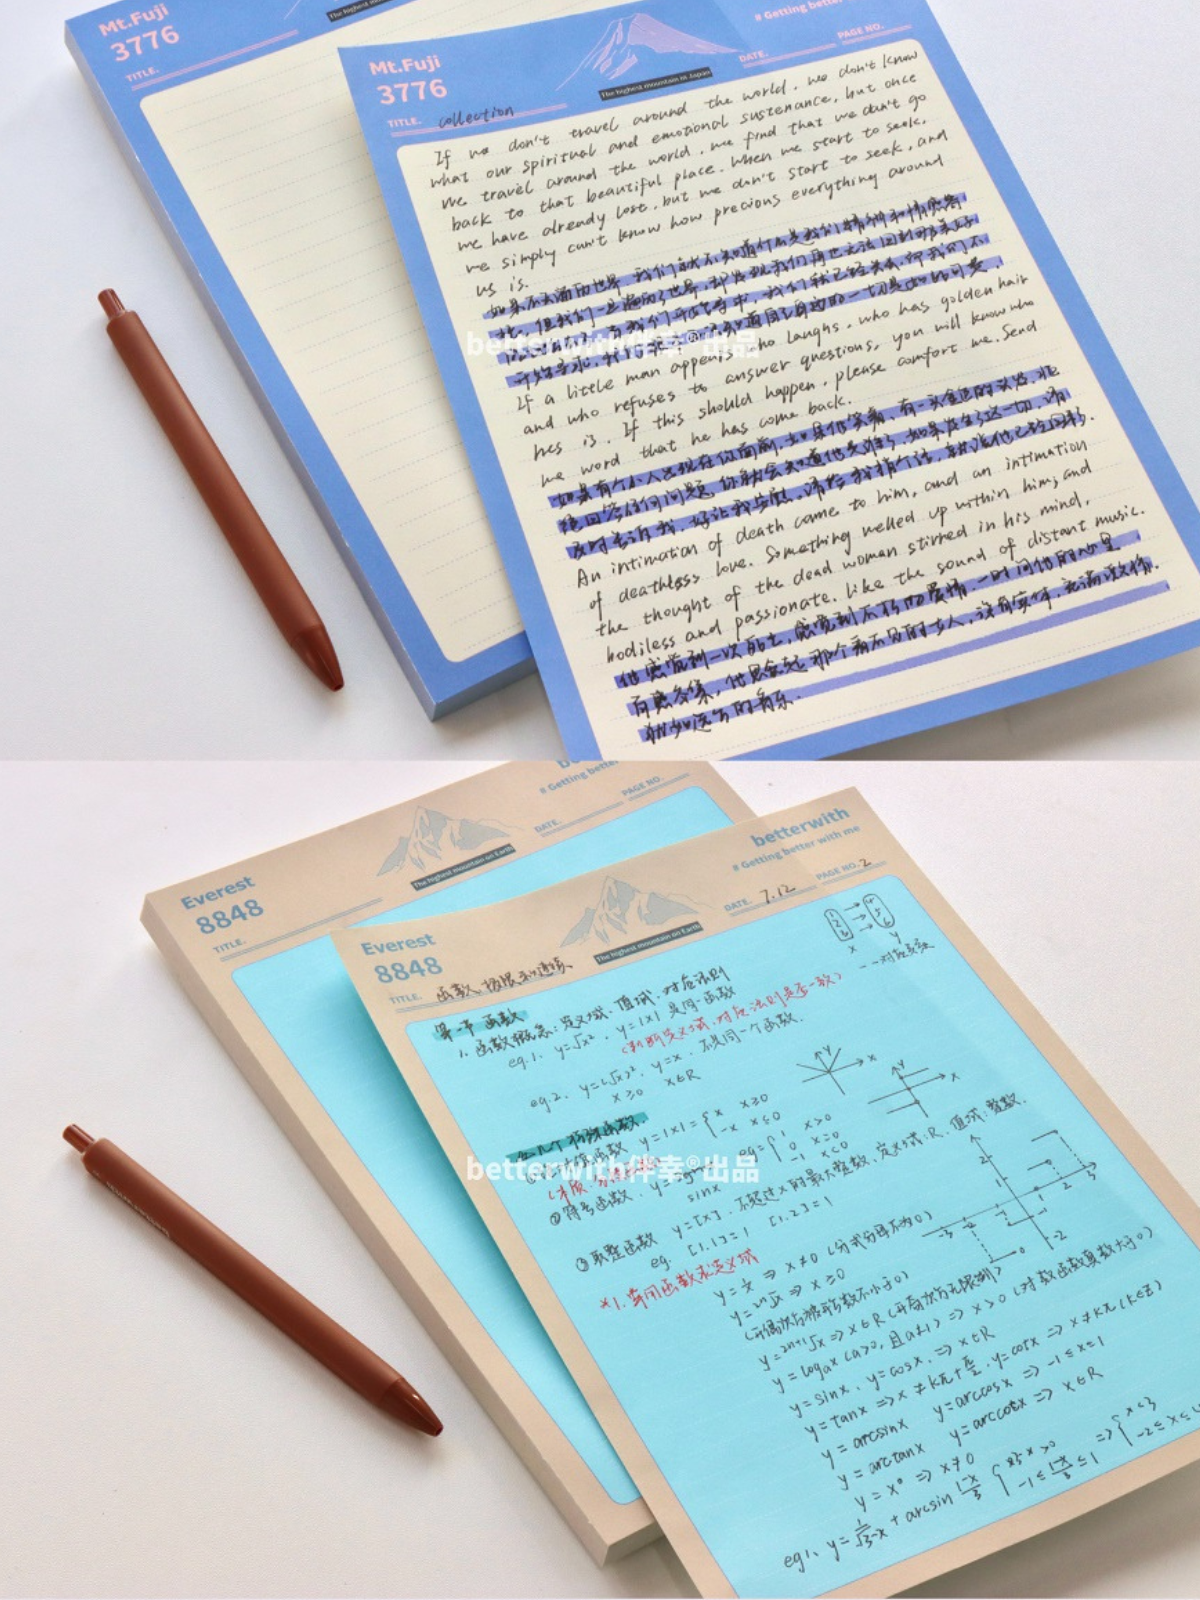 Mt.Fuji
3776
TITLE.
# Getting bette
Mt.Fuji
3776
The highest mountain in Japan
DATE.
PAGE NO.
TITLE. collection
If we don't travel around the world, we don't know
what our spiritual and emotional sustenance, but once
we travel around the world, we find that we don't go
back to that beautiful place. When we start to seek,
we have already lost, but we don't start to seek, and
we simply can't know how precious everything around
us is.
如果不去遍历世界,我们就不知道什么是我们精神和情感寄
托,但我们一旦遍历了世界,却发现我们再也无法回到那美好
开始寻求,我们
的一切是如此可贵.
If a little man appears who laughs, who has golden hair
and who refuses to answer questions, you will know who
hes is. If this should happen, please comfort me. Send
me word that he has come back.
如果有个小人出现在你面前,如果他笑着,有一头金色的头发,拒
绝回答任何问题,你就会知道他是谁了,如果发生了这一切,请
及时告诉我,好让我安慰,请给我捎个话,就说他已经回来了.
An intimation of death came to him, and an intimation
of deathless love. Something welled up within him, and
the thought of the dead woman stirred in his mind,
bodiless and passionate, like the sound of distant music.
他感觉到一次死亡,感觉到不朽的爱情,一时间他的心里
百感交集,他思念起那个看不见的女人,没有实体,充满激情,
犹如远方的音乐.
betterwith伴幸®出品
Everest
8848
TITLE.
The highest mountain on Earth
DATE.
PAGE NO.
# Getting better
Everest
8848
The highest mountain on Earth
betterwith
# Getting better with me
DATE. 7.12
PAGE NO. 2
TITLE. 函数、极限和连续
x y
一一对应
第一节 函数
1. 函数概念:定义域、值域、对应法则
eg.1. y=√x², y=|x| 是同一函数
(判断定义域,对应法则是否一致)
eg.2. y=(√x)², y=x, 不是同一个函数.
x≥0 x∈R
函数 y=|x|={x x≥0
-x x≤0
②符号函数, y=sgnx eg={1 x>0
0 x=0
-1 x<0
sinx
③取整函数 y=[x], 不超过x的最大整数, 定义域:R, 值域:整数.
eg. [1.1]=1 [1.2]=1
*1. 常用函数求定义域
y=1/x ⇒ x≠0 (分式分母不为0)
y=²ⁿ√x ⇒ x≥0
(开偶次方被开方数不小于0)
y=²ⁿ⁺¹√x ⇒ x∈R (开奇次方无限制)
y=logₐx (a>0, 且a≠1) ⇒ x>0 (对数函数真数大于0)
y=sinx, y=cosx, ⇒ x∈R
y=tanx ⇒ x≠kπ+π/2, y=cotx ⇒ x≠kπ (k∈Z)
y=arcsinx y=arccosx ⇒ -1≤x≤1
y=arctanx y=arccotx ⇒ x∈R
y=x⁰ ⇒ x≠0
eg1. y=1/√3-x + arcsin 1-x/3 {3-x>0
-1≤1-x/3≤1
⇒{x<3
-2≤x≤
betterwith伴幸®出品